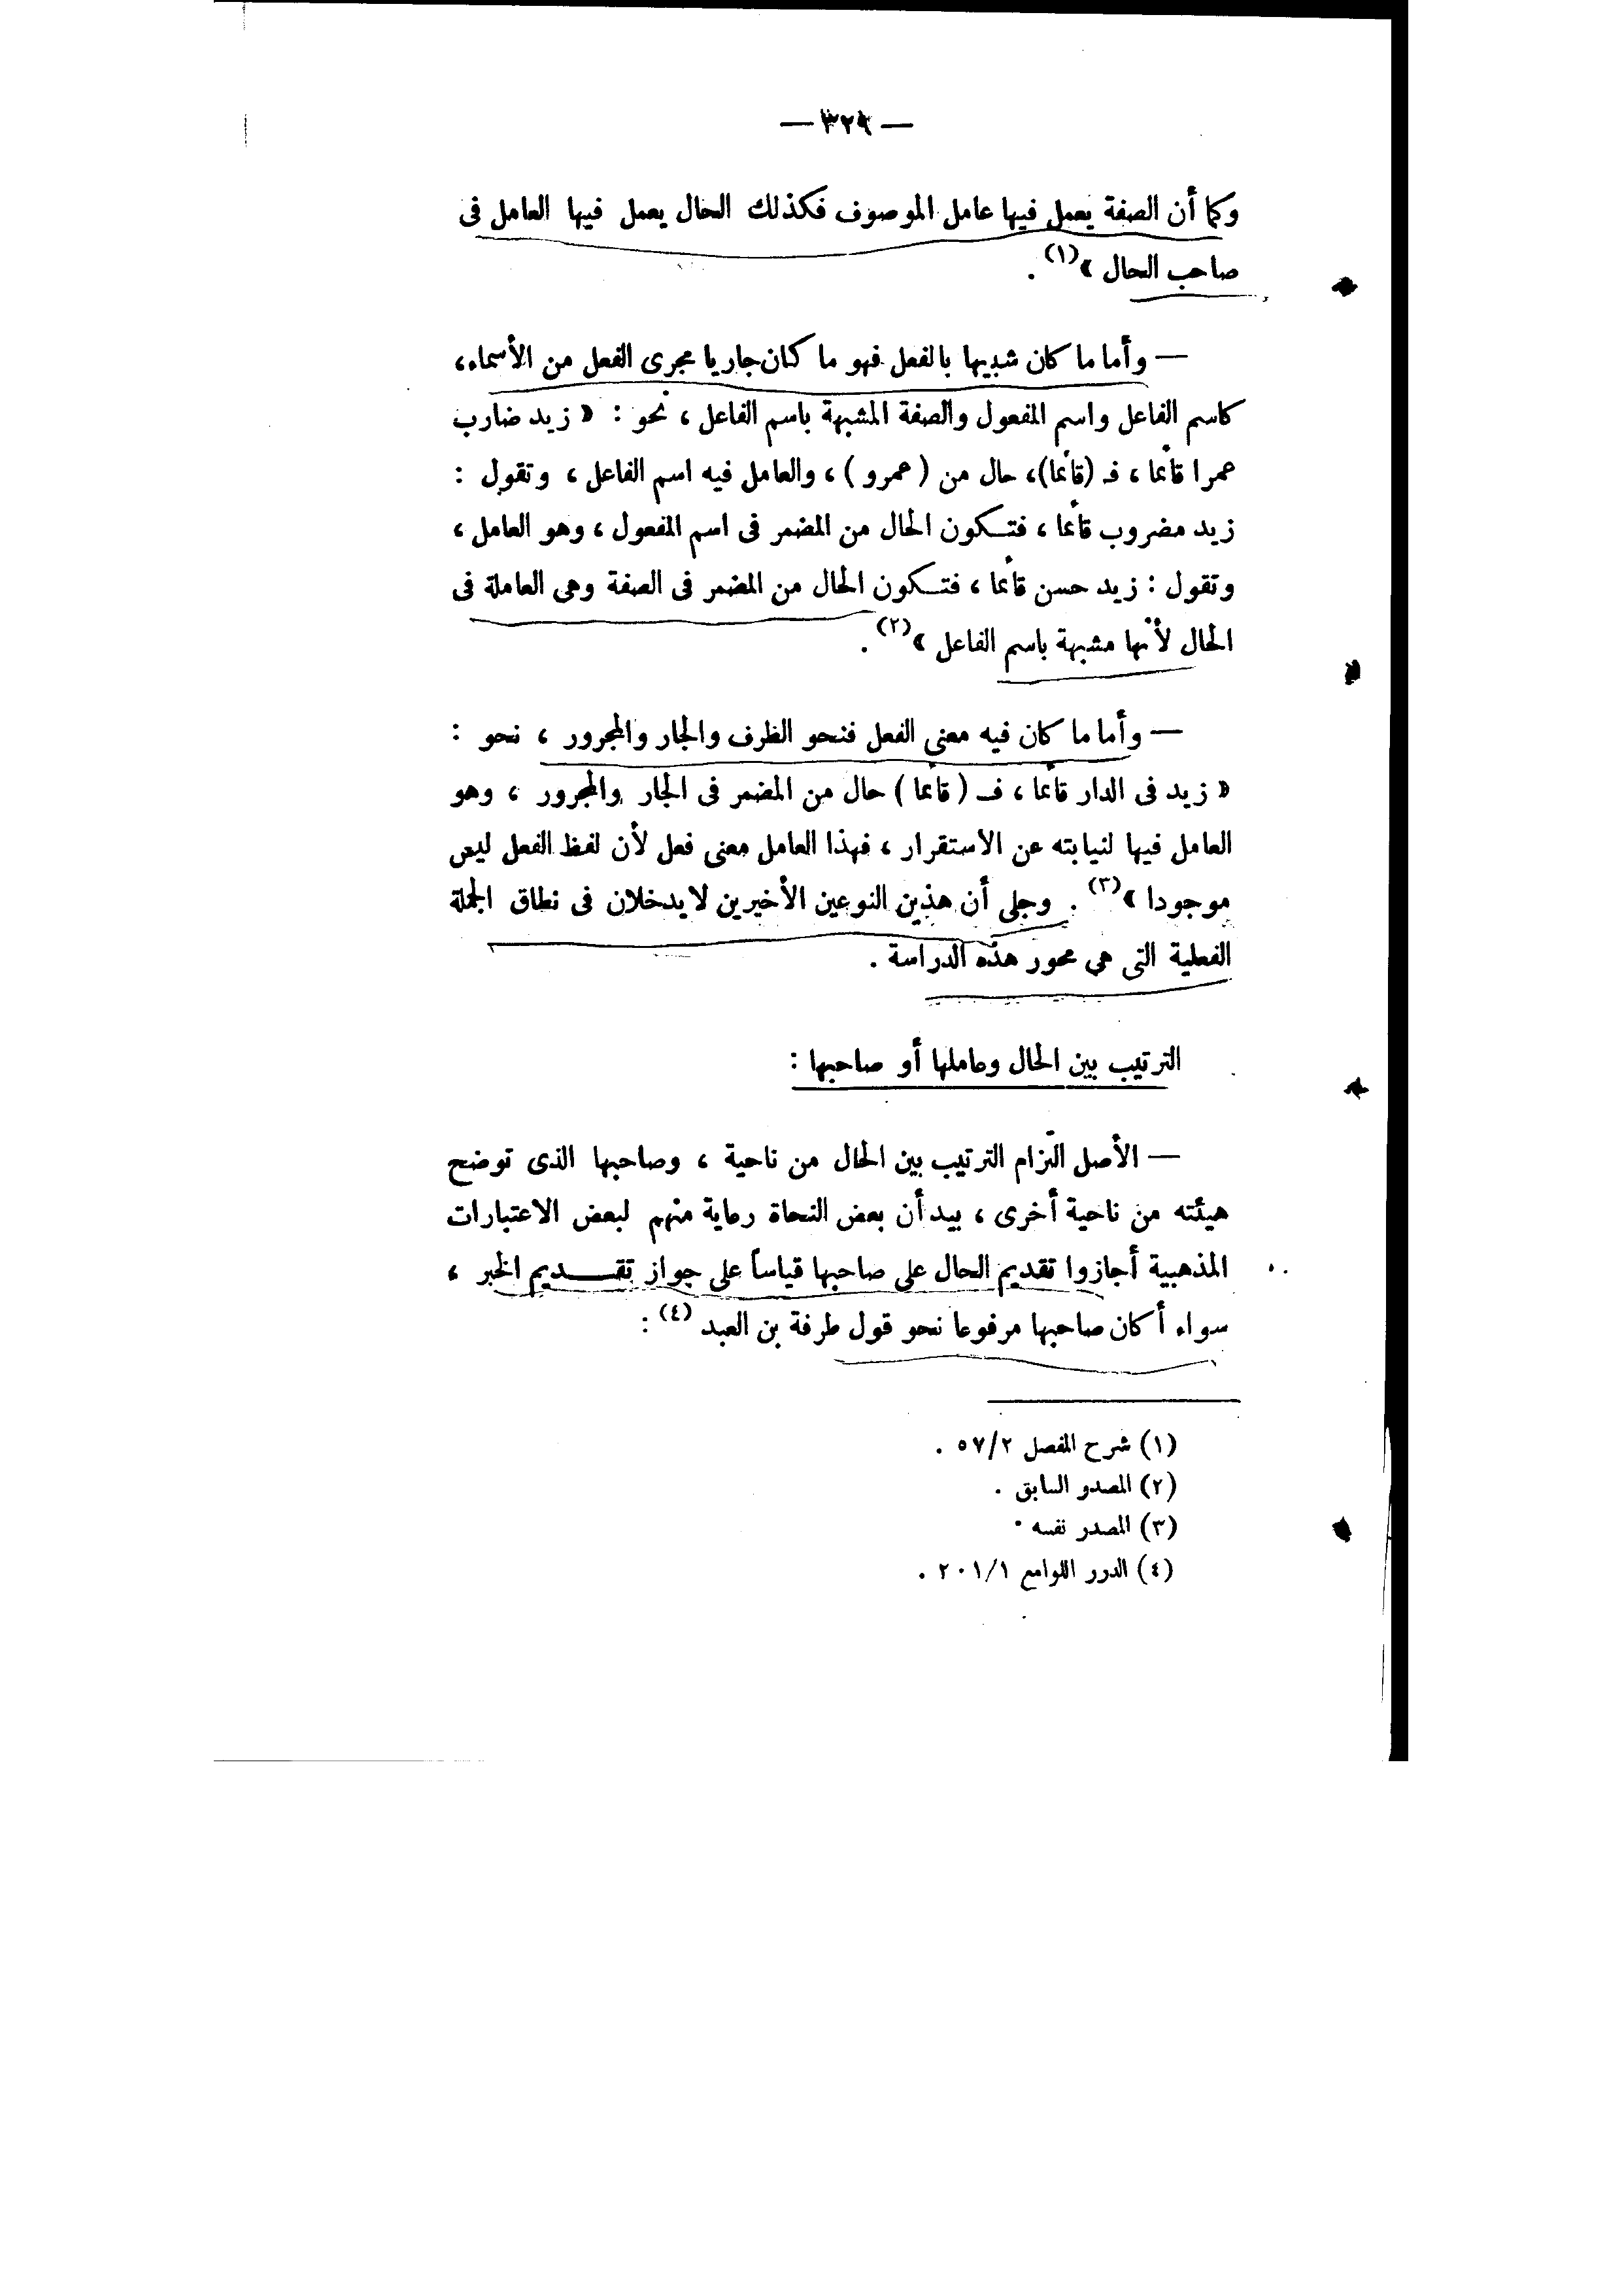 — ٣٢٩ —
وكما أن الصفة يعمل فيها عامل الموصوف فكذلك الحال يعمل فيها العامل فى
صاحب الحال »(١) .
— وأما ما كان شبيها بالفعل فهو ما كان جاريا مجرى الفعل من الأسماء،
كاسم الفاعل واسم المفعول والصفة المشبهة باسم الفاعل ، نحو : « زيد ضارب
عمرا قائما ، فـ (قائما)، حال من ( عمرو ) ، والعامل فيه اسم الفاعل ، وتقول :
زيد مضروب قائما ، فتكون الحال من المضمر فى اسم المفعول ، وهو العامل ،
وتقول : زيد حسن قائما ، فتكون الحال من المضمر فى الصفة وهى العاملة فى
الحال لأنها مشبهة باسم الفاعل »(٢) .
— وأما ما كان فيه معنى الفعل فنحو الظرف والجار والمجرور ، نحو :
« زيد فى الدار قائما ، فـ ( قائما ) حال من المضمر فى الجار والمجرور ، وهو
العامل فيها لنيابته عن الاستقرار ، فهذا العامل معنى فعل لأن لفظ الفعل ليس
موجودا »(٣) . وجلى أن هذين النوعين الأخيرين لا يدخلان فى نطاق الجملة
الفعلية التى هى محور هذه الدراسة .
الترتيب بين الحال وعاملها أو صاحبها :
— الأصل التزام الترتيب بين الحال من ناحية ، وصاحبها الذى توضح
هيئته من ناحية أخرى ، بيد أن بعض النحاة رعاية منهم لبعض الاعتبارات
المذهبية أجازوا تقديم الحال على صاحبها قياساً على جواز تقديم الخبر ،
سواء أكان صاحبها مرفوعا نحو قول طرفة بن العبد (٤) :
(١) شرح المفصل ٥٧/٢ .
(٢) المصدو السابق .
(٣) المصدر نفسه .
(٤) الدرر اللوامع ٢٠١/١ .